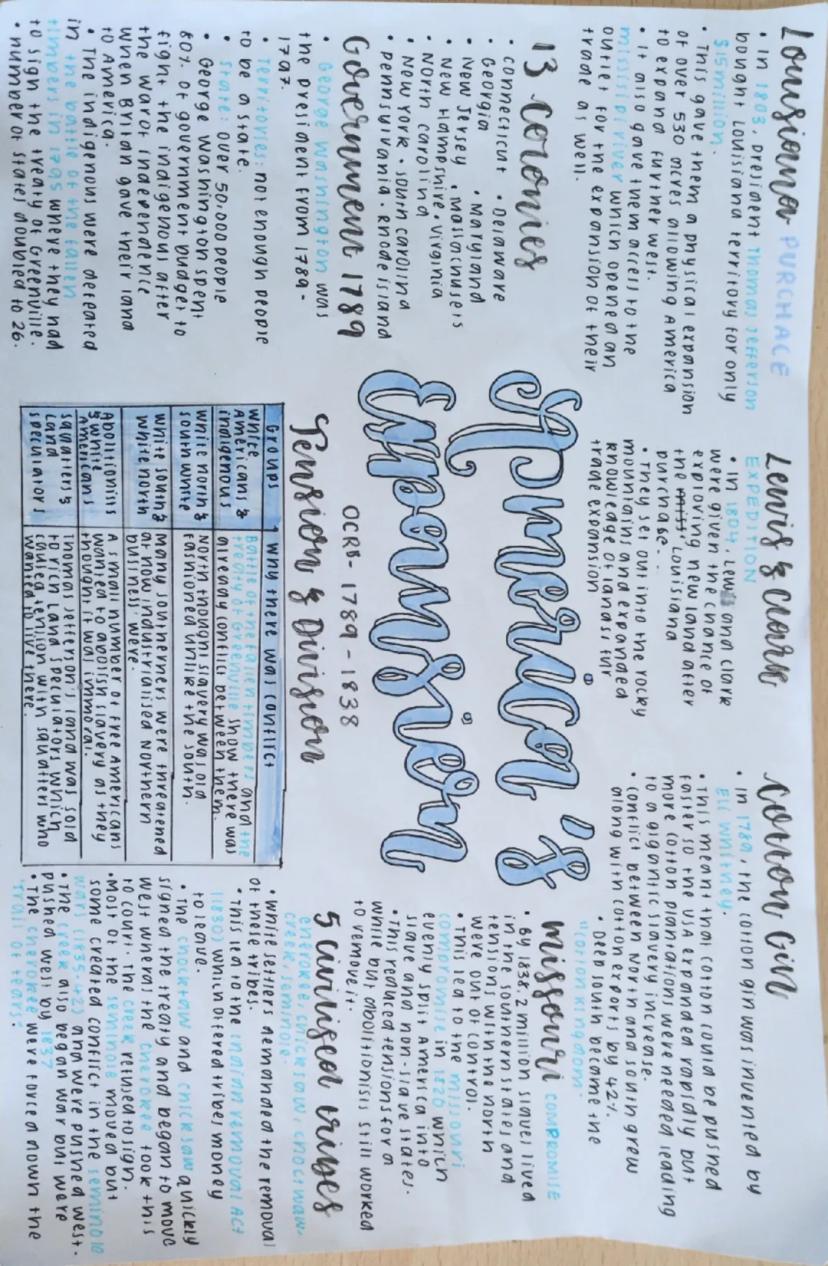 Louisiana PURCHACE
• In 1803, president Thomas Jefferson
bought Louisiana territory for only
$15million.
• This gave them a physical expansion
of over 530 acres allowing America
to expand further west.
• It also gave them access to the
mississipi river which opened an
outlet for the expansion of their
trade as well.
Lewis & Clark
EXPEDITION
• In 1804, Lewis and Clark
were given the chance of
exploring new land after
the Louisiana
purchase.
• They set out into the rocky
mountains and expanded
knowledge of lands & fur
trade expansion
Cotton Gin
• In 1789, the cotton gin was invented by
Eli Whitney.
• This meant that cotton could be pushed
faster so the USA expanded rapidly but
more cotton plantations were needed leading
to a gigantic slavery increase.
• Conflict between North and South grew
along with cotton exports by 42%.
• Deep south became the
"cotton kingdom"
13 colonies
• Connecticut • Delaware
• Georgia • Maryland
• New Jersey • Massachusets
• New Hampshire • Virginia
• North carolina
• New York • South carolina
• Pennsylvania • Rhode island
America's
Expansion
OCRB - 1789 - 1838
Government 1789
• George Washington was
the president from 1789-
1797.
• Territories: not enough people
to be a state.
• State: over 50,000 people
• George Washington spent
80% of government budget to
fight the indigenous after
the war of independence
when Britan gave their land
to America.
• The indigenous were defeated
in the battle of the fallen
timbers in 1795 where they had
to sign the treaty of Greenville.
• number of states doubled to 26.
Tension & Division
Groups Why there was conflict
White Americans & indigenous
Battle of the fallen timbers and the
treaty of Greenville show there was
already conflict between them.
White north & south white
North thought slavery was old
fashioned unlike the south.
White south & white north
Many southerners were threatened
at how industrialised Northern
business' were.
Abolitionists & white Americans
A small number of free Americans
wanted to abolish slavery as they
thought it was immoral.
squatters & Land speculators
Thomas Jefferson's land was sold
to rich land speculators which
caused tension with squatters who
wanted to live there.
missouri COMPROMISE
• By 1838, 2 million slaves lived
in the southern states and
tensions with the north
were out of control.
• This led to the missouri
compromise in 1820 which
evenly split America into
slave and non-slave states.
• This reduced tensions for a
while but abolitionists still worked
to remove it.
5 civilised tribes
cherokee, chickasaw, choctwaw,
creek, seminole.
• White settlers demanded the removal
of these tribes.
• This led to the indian removal Act
(1830) which offered tribes money
to leave.
• The chocktaw and chicksaw quickly
signed the treaty and began to move
west wheras the cherokee took this
to court. The creek refused to sign.
• Most of the seminole moved but
some created conflict in the seminole
wars (1835-42) and were pushed west.
• The creek also began war but were
pushed west by 1837
• The cherokee were forced down the
'trail of tears'.